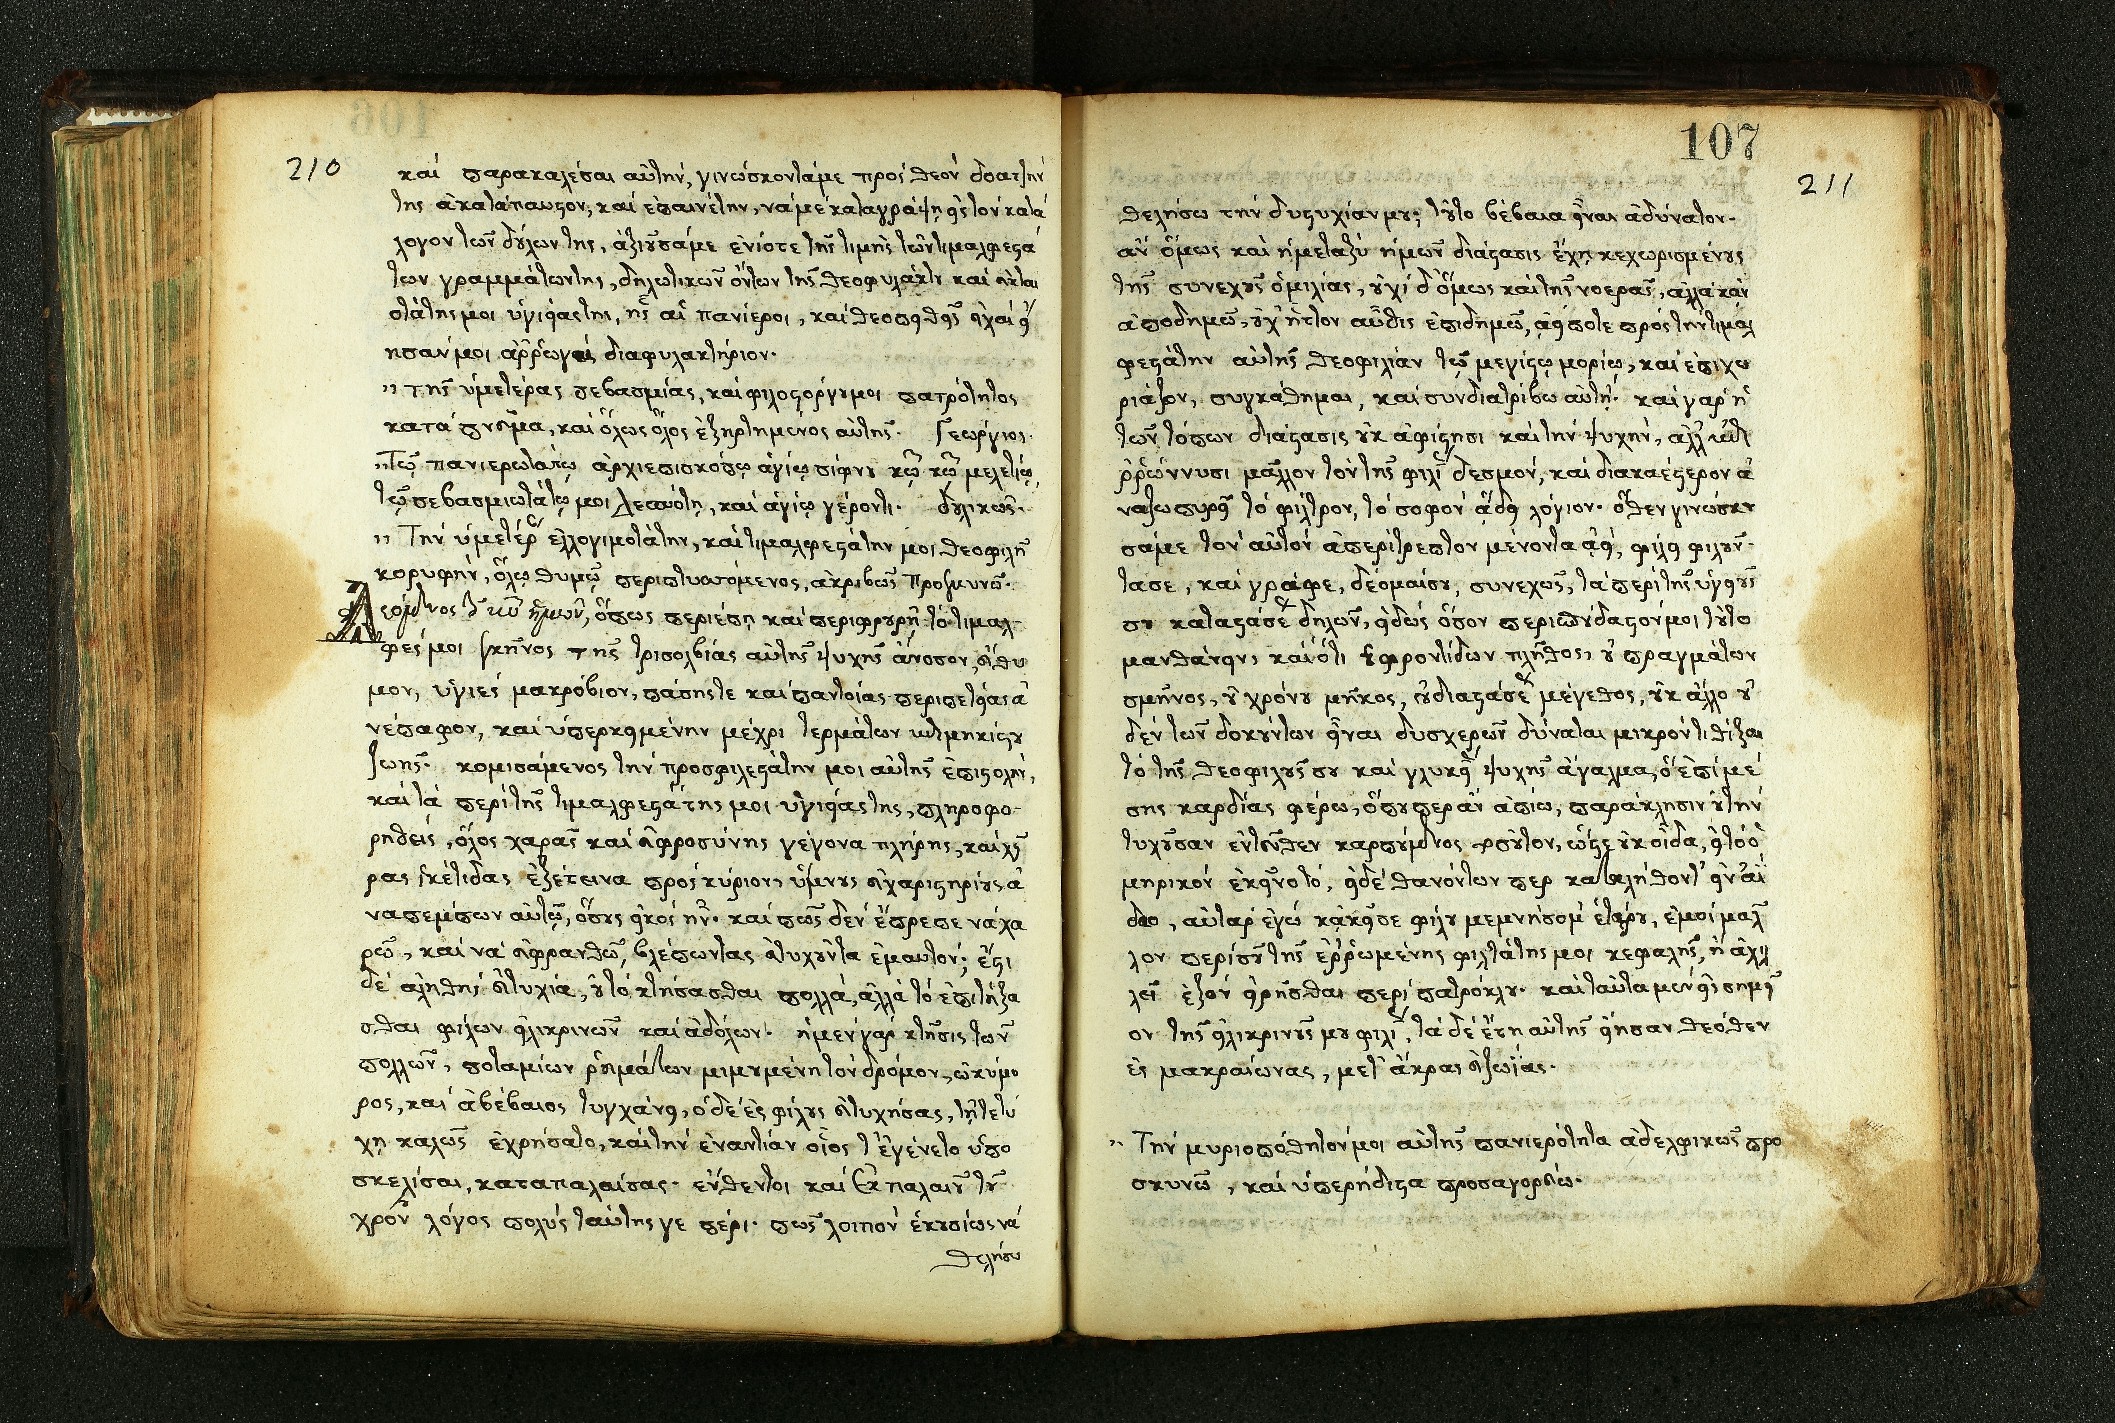 210
καί παρακαλέσαι αὐτήν, γινώσκοντάμε πρός θεόν
της ἀκατάπαυστον, καί ἐπαινέτην, νά με καταγράψῃ εἰς τόν κατά
λογον τῶν δούλων της, ἀξιοῦσάμε ἐνίοτε τῆς τιμῆς τῶν τιμαλφεστά
των γραμμάτων της, δηλωτικῶν ὄντων τῆς θεοφυλάκτου καί
μοι ὑγιείας της, ἧς αἱ πανίεροι, καί θεοπειθεῖς εὐχαί εἴ
ησαν μοι ἀῤῥωγαί διαφυλακτήριον.
" της ὑμετέρας σεβασμίας, καί φιλοστόργου μοι πατρότητος
κατά πνεῦμα, καί ὅλως ὅλος ἐξηρτημένος αὐτῆς. Γεώργιος.
" Τῷ πανιερωτάτῳ ἀρχιεπισκόπῳ ἁγίῳ σίφνου κῷ κῷ μελετίῳ,
τῷ σεβασμιωτάτῳ μοι δεσπότῃ, καί ἁγίῳ γέροντι. δουλικῶς.
" Τήν ὑμετέραν ἐλλογιμοτάτην, καί τιμαλφεστάτην μοι θεοφιλῆ
κορυφήν, ὅλῳ θυμῷ περιπτυσσόμενος, ἀκριβῶς προσκυνῶ.
Δεόμενος τοῦ κυ ἡμῶν, ὅπως περιέπῃ καί περιφρουρῇ τό τιμαλ
φές μοι σκῆνος της τρισολβίας αὐτῆς ψυχῆς ἄνοσον, εὔθυ
μον, ὑγιές μακρόβιον, πάσης τε καί παντοίας περιπετείας ἀ
νέπαφον, καί ὑπερκειμένην μέχρι τερμάτων μηκίστου
ζωῆς. κομισάμενος τήν προσφιλεστάτην μοι αὐτῆς ἐπιστολήν,
καί τά περί τῆς τιμαλφεστάτης μοι ὑγιείας της, πληροφο-
ρηθείς, ὅλος χαρᾶς καί εὐφροσύνης γέγονα πλήρης, καί χεῖ
ρας ἱκέτιδας ἐξέτεινα πρός κύριον, ὕμνους εὐχαριστηρίους ἀ
ναπέμπων αὐτῷ, ὅσους εἰκός ἦν. καί πῶς δέν ἔπρεπε νά χα
ρῶ, καί νά εὐφρανθῶ, βλέπωντας εὐτυχοῦντα ἐμαυτόν; ἔστι
δέ ἀληθής εὐτυχία, οὐ τό κτήσασθαι πολλά, ἀλλά τό ἐπιτεύξα
σθαι φίλων εἰλικρινῶν καί ἀδόλων. ἡ μέν γάρ κτῆσις τῶν
πολλῶν, ποταμίων ῥευμάτων μιμουμένη τόν δρόμον, ὠκύμο
ρος, καί ἀβέβαιος τυγχάνει, ὁ δέ ἐς φίλους εὐτυχήσας, τῇ τε τύ
χῃ καλῶς ἐχρήσατο, καί τήν ἐναντίαν οἷός τ' ἐγένετο ὑπο
σκελίσαι, καταπαλαίσας. ἔνθεντοι καί ἐκ παλαιοῦ τοῦ
χρόνου λόγος πολύς ταύτης γε πέρι. πῶς λοιπόν ἑκουσίως νά
θελήσω
107
211
θελήσω τήν δυστυχίαν μου; τοῦτο βέβαια εἶναι ἀδύνατον.
ἄν ὅμως καί ἡ μεταξύ ἡμῶν διάστασις ἔχῃ κεχωρισμένους
τῆς συνεχοῦς ὁμιλίας, οὐχί δ' ὅμως καί τῆς νοερᾶς, ἀλλά κἄν
ἀποδημῶ, οὐχ' ἧττον αὖθις ἐπιδημῶ, ἀείποτε πρός τήν τιμαλ
φεστάτην αὐτῆς θεοφιλίαν τῷ μεγίστῳ μορίῳ, καί ἐπιχω
ριάζων, συγκάθημαι, καί συνδιατρίβω αὐτῇ. καί γάρ ἡ
τῶν τόπων διάστασις οὐκ ἀφίστησι καί τήν ψυχήν, ἀλλ'
ῥώννυσι μᾶλλον τόν τῆς φιλίας δεσμόν, καί διακαέστερον ἀ
ναζωπυρεῖ τό φίλτρον, τό σοφόν ᾄδει λόγιον. ὅθεν γινώσκου
σάμε τόν αὐτόν ἀπερίτρεπτον μένοντα ἀεί, φίλει φιλοῦν-
τασε, καί γράφε, δέομαίσου, συνεχῶς, τά περί τῆς ὑγιοῦς
σου καταστάσεως δηλῶν, εἰδώς ὅσον περισπούδαστόν μοι τοῦτο
μανθάνειν, καί ὅτι οὐ φροντίδων πλῆθος, οὐ πραγμάτων
σμῆνος, οὐ χρόνου μῆκος, οὐ διαστάσεως μέγεθος, οὐκ ἄλλο οὐ
δέν τῶν δοκούντων εἶναι δυσχερῶν δύναται μικρόν τι θίξαι
τό τῆς θεοφιλοῦς σου καί γλυκείας ψυχῆς ἄγαλμα, ὅ ἐπί μέ
σης καρδίας φέρω, ὅπουπερ ἄν ἀπίω, παράκλησιν οὐ τήν
τυχοῦσαν ἐντεῦθεν καρπούμενος τοσοῦτον, ὥστε οὐκ οἶδα, εἰ τό ὁ
μηρικόν ἐκεῖνο τό, εἰ δέ θανόντων περ καταλήθοντ' εἰν ἀΐ
δαο, αὐτάρ ἐγώ κἀκεῖσε φίλου μεμνήσομ' ἑταίρου, ἐμοί μᾶλ
λον περί σοῦ τῆς ἐῤῥωμένης φιλτάτης μοι κεφαλῆς, ἤ ἀχιλ
λεῖ ἐξόν εἰρῆσθαι περί πατρόκλου. καί ταῦτα μέν εἰς σημεῖ
ον τῆς εἰλικρινοῦς μου φιλίας, τά δέ ἔτη αὐτῆς εἴησαν θεόθεν
ἐς μακραίωνας, μετ' ἄκρας εὐζωΐας.
" Τήν μυριοπόθητόν μοι αὐτῆς πανιερότητα ἀδελφικῶς προ
σκυνῶ, καί ὑπερήδιστα προσαγορεύω.